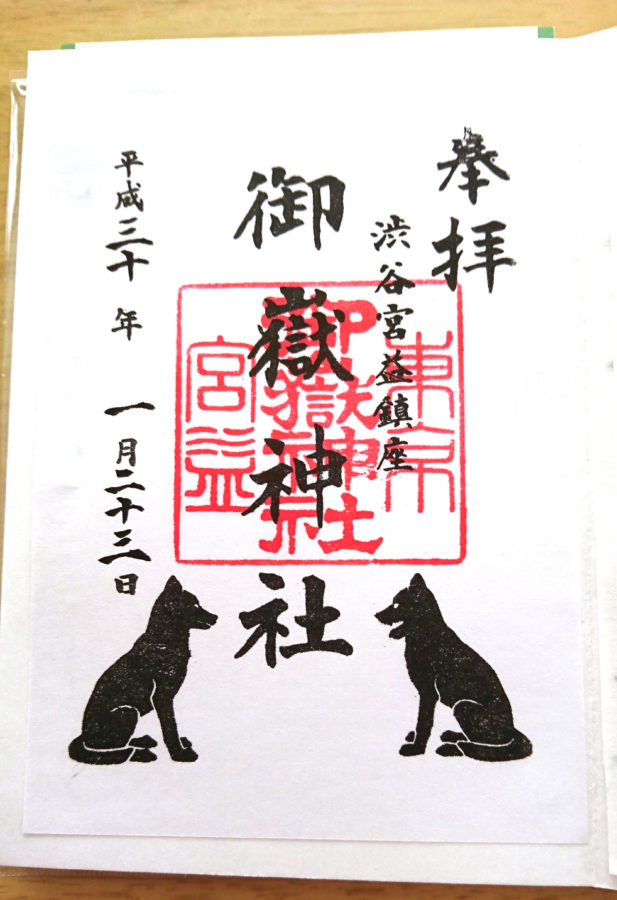 奉拝
渋谷宮益鎮座
御嶽神社
平成三十年 一月二十三日
東京
御嶽神社
宮益